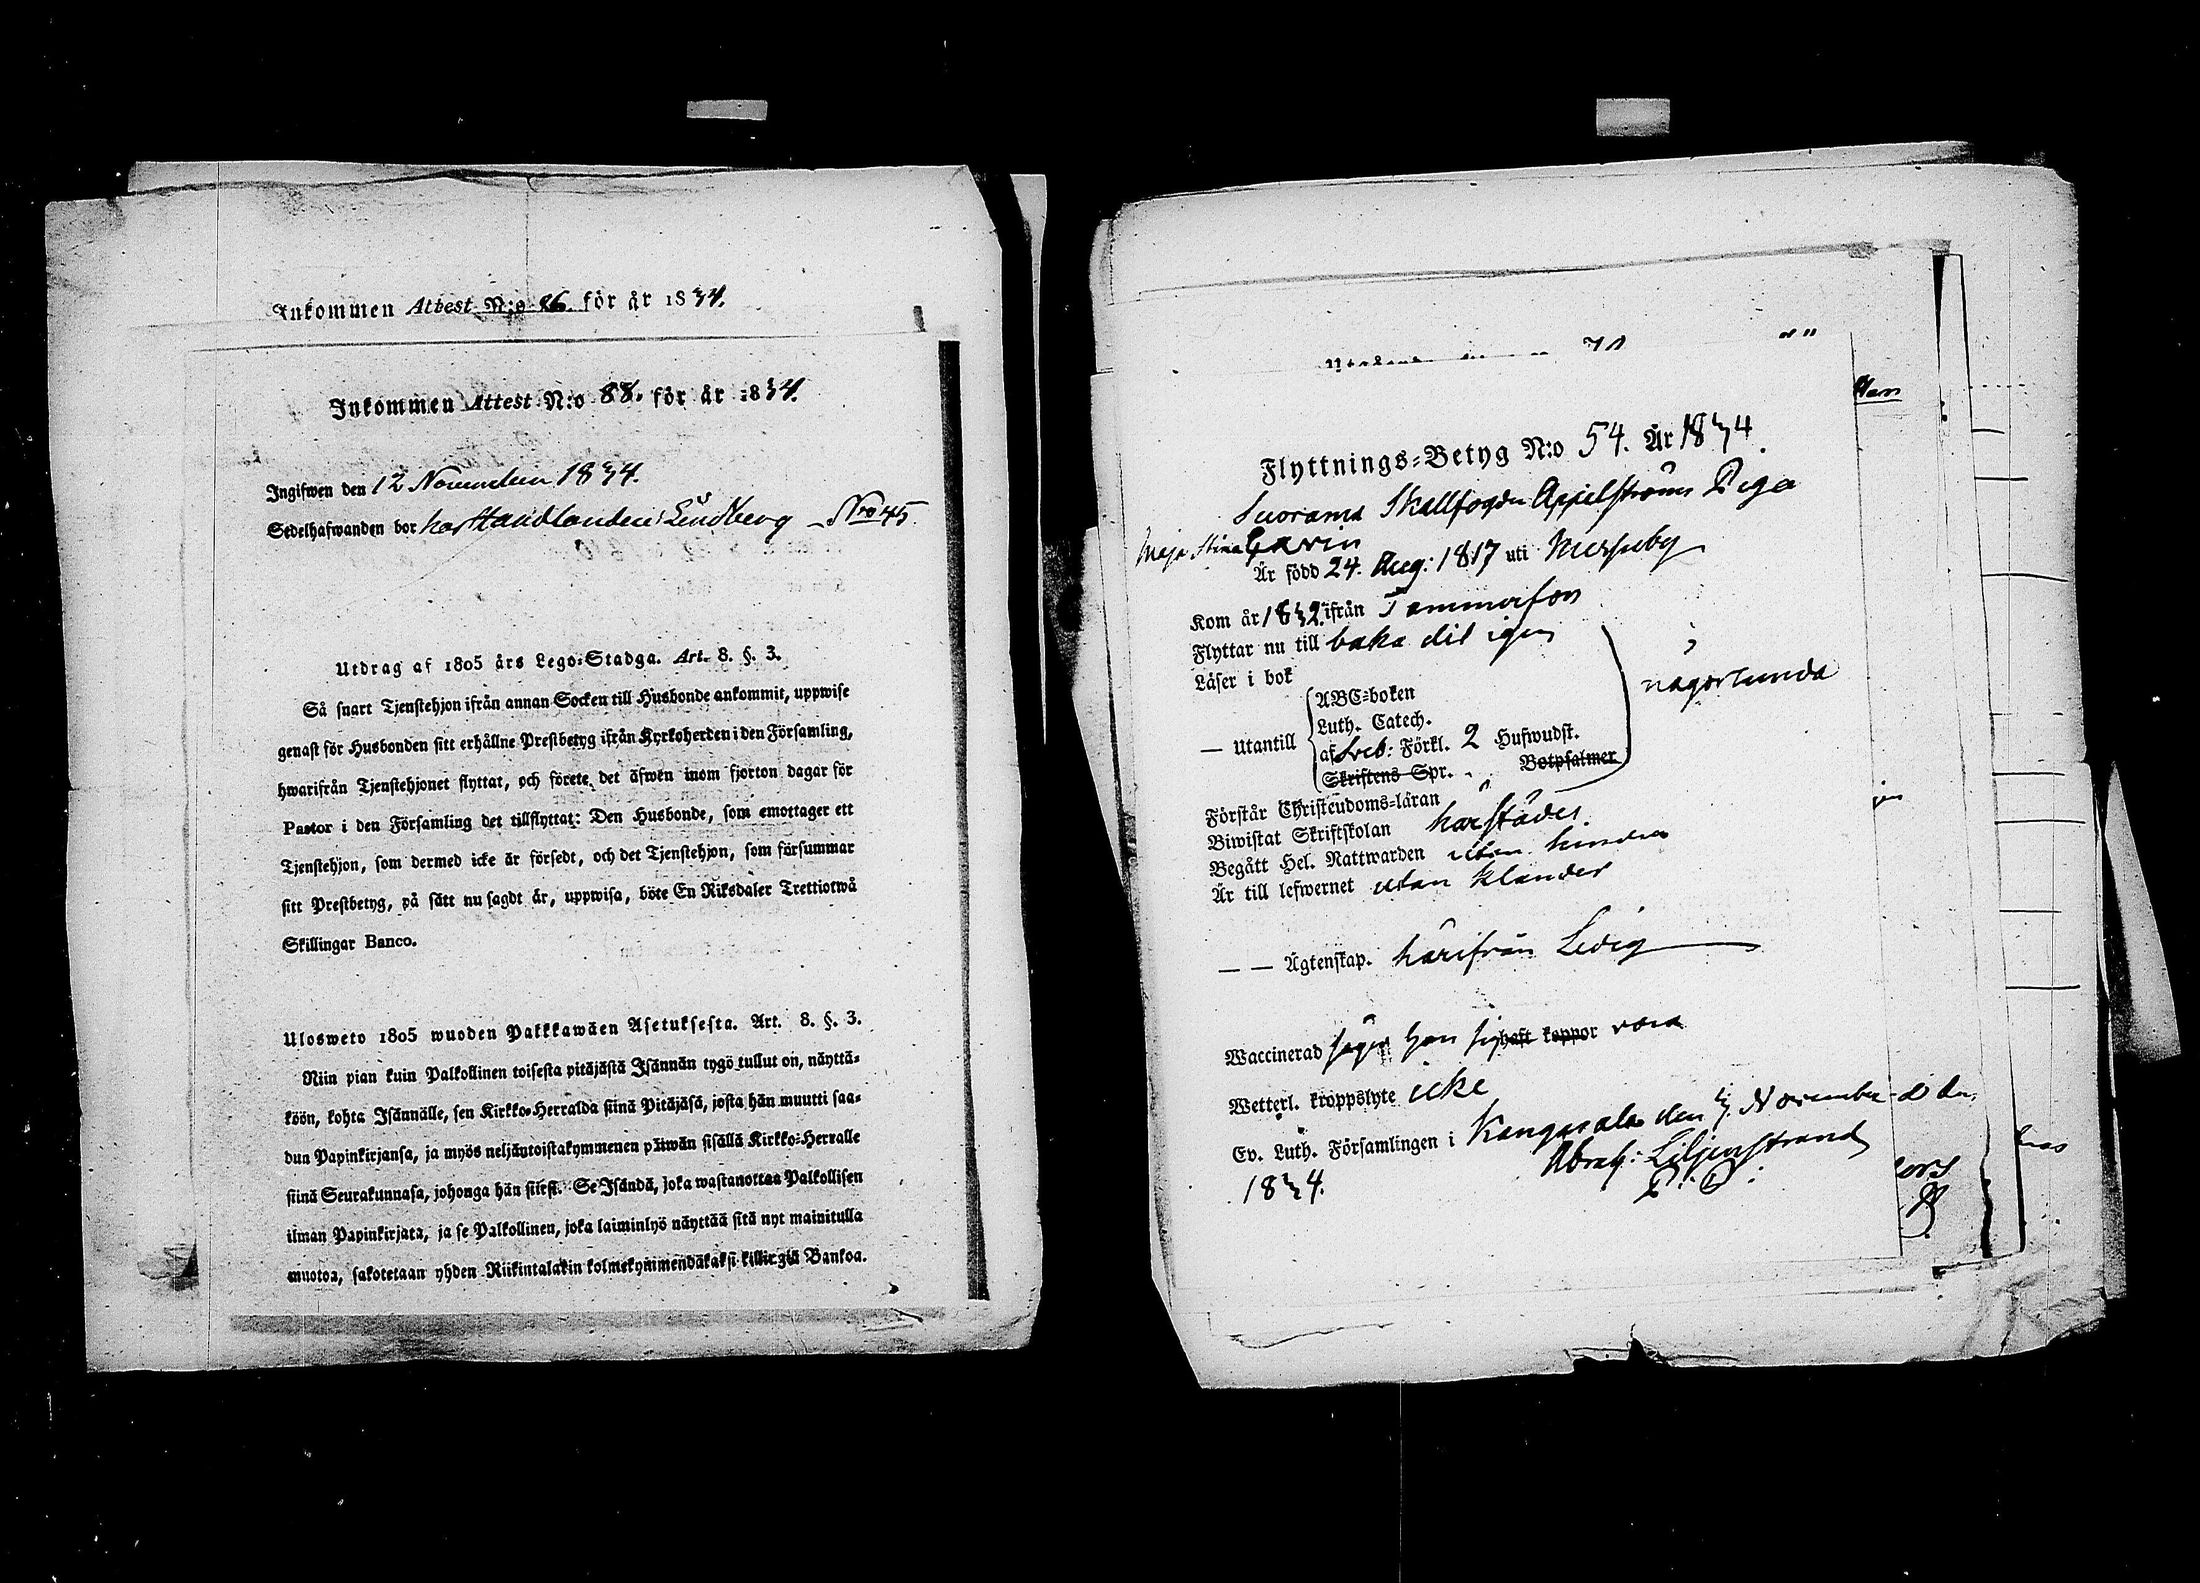 Inkommen Attest N:o 86. för år 1834.
Inkommen Attest N:o 88. för år 1834.
Ingifwen den 12 November 1834.
Sedelhafwanden bor hos Handlanden Lindberg Nro 45.
Utdrag af 1805 års Lego-Stadga. Art. 8. §. 3.
Så snart Tjenstehjon ifrån annan Socken till Husbonde ankommit, uppwise
genast för Husbonden sitt erhållne Prestbetyg ifrån Kyrkoherden i den Församling,
hwarifrån Tjenstehjonet flyttat, och förete det äfwen inom fjorton dagar för
Pastor i den Församling det tillflyttat: Den Husbonde, som emottager ett
Tjenstehjon, som dermed icke är försedt, och det Tjenstehjon, som försummar
sitt Prestbetyg, på sätt nu sagdt är, uppwisa, böte En Riksdaler Trettiotwå
Skillingar Banco.
Ulosweto 1805 wuoden Palkkawäen Asetuksesta. Art. 8. §. 3.
Niin pian kuin Palkollinen toisesta pitäjästä Isännän tygö tullut on, näyttä-
köön, kohta Isännälle, sen Kirkko-Herralda siinä Pitäjäsä, josta hän muutti saa-
dun Papinkirjansa, ja myös neljäntoistakymmenen päiwän sisällä Kirkko-Herralle
siinä Seurakunnasa, johonga hän siirsi. Se Isändä, joka wastanottaa Palkollisen
ilman Papinkirjata, ja se Palkollinen, joka laiminlyö näyttää sitä nyt mainitulla
muotoa, sakotetaan yhden Riikintalakin kolmekymmendäkaksi killingiä Bankoa.
Flyttnings-Betyg N:o 54. År 1834.
Suorama Skallfogden Appelströms Piga
Maja Stina Gavin
Är född 24. Aug: 1817 uti Messuby
Kom år 1832 ifrån Tammerfors
Flyttar nu till baka dit igen
Läser i bok
någorlunda
— Utantill
ABC-boken
Luth. Catech.
af Sveb: Förkl. 2 Hufwudst.
Skriftens Spr. Botpsalmer
Förstår Christendoms-läran
Biwistat Skriftskolan härstädes.
Begått Hel. Nattwarden utan hinder
Är till lefwernet utan klander
— — Ägtenskap. härifrån Ledig
Waccinerad säger hon sig haft koppor vara
Wetterl. kroppslyte icke
Ev. Luth. Församlingen i Kangasala den 7. November
1834.
Abrah: Liljenstrand